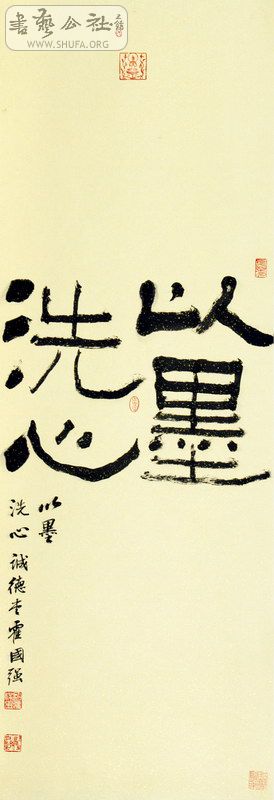 書藝公社
WWW.SHUFA.ORG
以墨
洗心
以墨
洗心 誠德堂霍國強